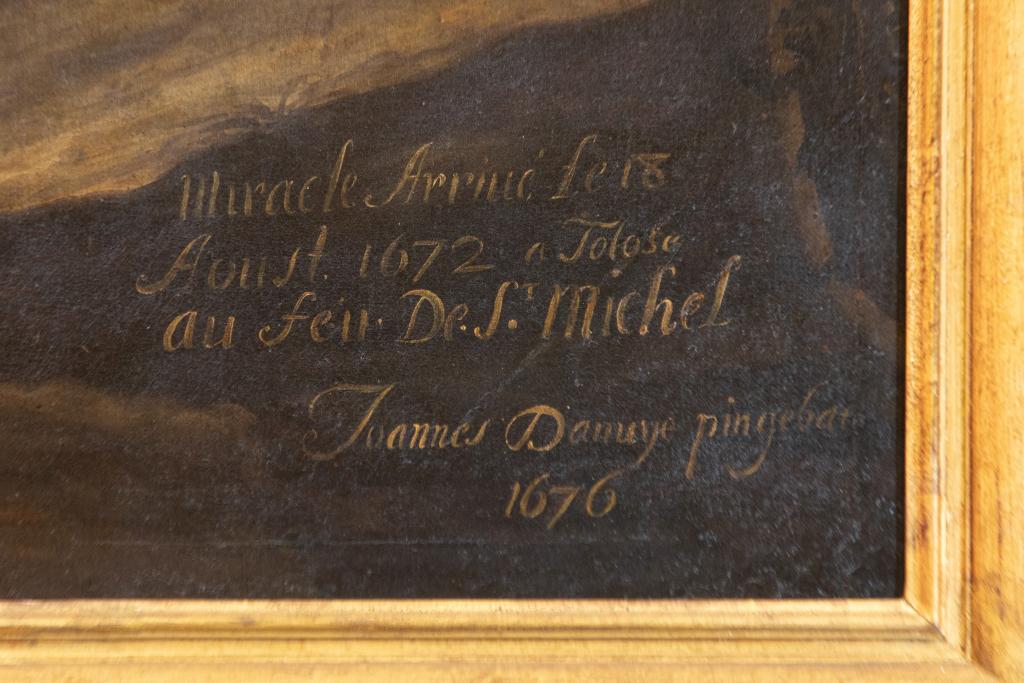 Miracle Arriué le 18
Aoust. 1672 a Tolose
au feu De. S.T Michel
Joannes Danuye pingebat
1676